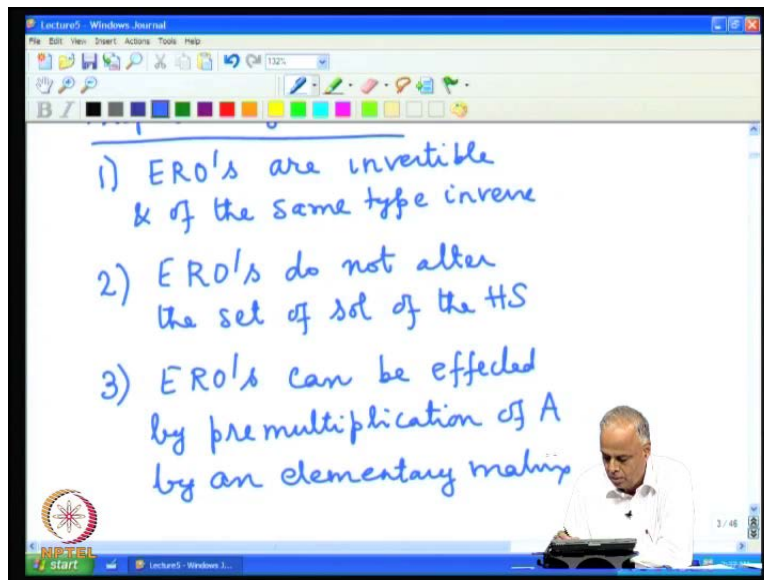 Lecture5 - Windows Journal
File Edit View Insert Actions Tools Help
132%
B I
1) ERO's are invertible
& of the same type inverse
2) ERO's do not alter
the set of sol of the HS
3) ERO's can be effected
by premultiplication of A
by an elementary matrix
3 / 46
NPTEL
start
Lecture5 - Windows J...